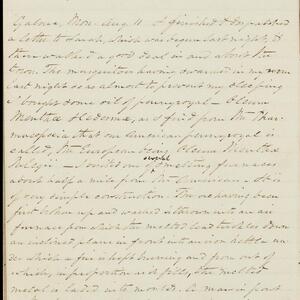 Galena, Mon. Aug 11. I finished & despatched
a letter to Sarah, which was begun last night, &
then walked a good deal in and about the
town. The musquitoes having swarmed in my room
last night so as almost to prevent my sleeping
I bought some oil of pennyroyal — Oleum
Menthae Hedeomae, as I find from the Phar-
macopoeia that our American pennyroyal is
called, the European being Oleum Menthae
Pulegii — I visited one of several smelting furnaces
about half a mile from the American. It is
of very simple construction. The ore having been
first broken up and washed is thrown into an air
furnace from which the melted lead trickles down
an inclined plane in front into an iron kettle un-
der which a fire is kept burning and from out of
which, in proportion as it fills, the melted
metal is laded into moulds. A man in front